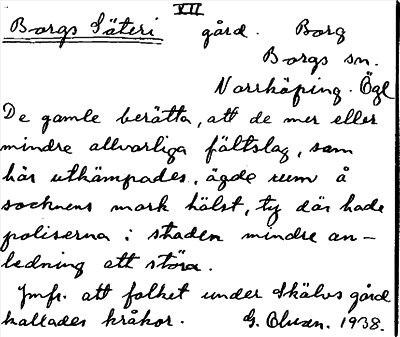 VII
Borgs Säteri gård. Borg
Borgs sn.
Norrköping. Ögl
De gamle berätta, att de mer eller
mindre allvarliga fältslag, som
här utkämpades, ägde rum å
socknens mark hälst, ty där hade
poliserna i staden mindre an-
ledning att störa.
Jmfr. att folket under Skälvs gård
kallades kråkor. G. 1938.